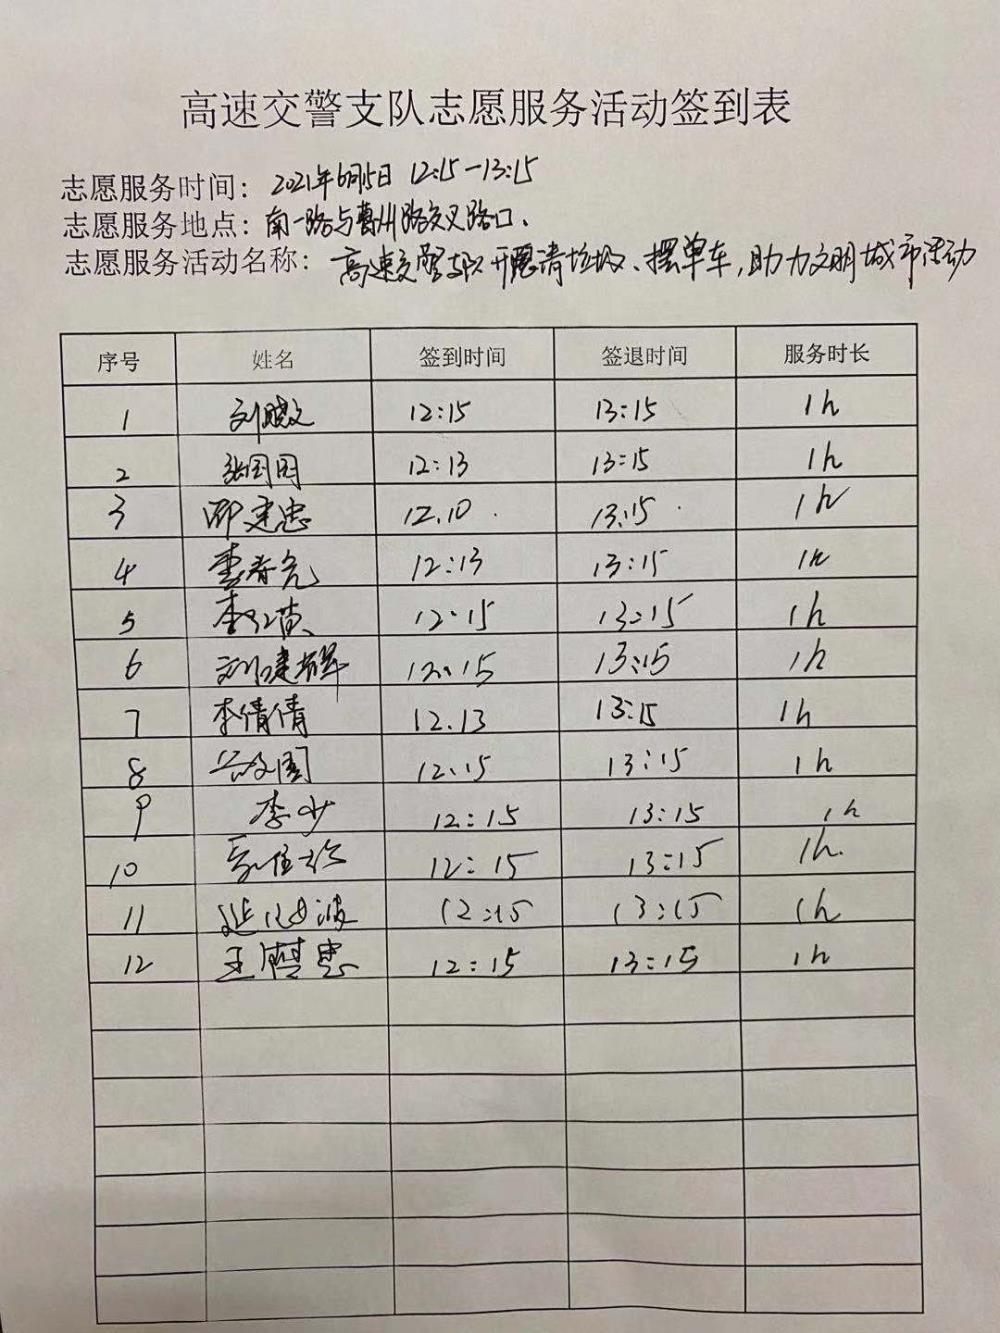 高速交警支队志愿服务活动签到表
志愿服务时间：2021年6月5日 12:15-13:15
志愿服务地点：南一路与惠州路交叉路口、
志愿服务活动名称：高速交警支队开展清垃圾、摆单车，助力文明城市活动
序号 姓名 签到时间 签退时间 服务时长
1 刘晓文 12:15 13:15 1h
2 张囯囯 12:13 13:15 1h
3 邵建忠 12.10 13:15 1h
4 李春亮 12:13 13:15 1h
5 12:15 13:15 1h
6 刘建辉 12:15 13:15 1h
7 李倩倩 12.13 13:15 1h
8 12:15 13:15 1h
9 李少 12:15 13:15 1h
10 12:15 13:15 1h.
11 12:15 13:15 1h
12 王 忠 12:15 13:15 1h